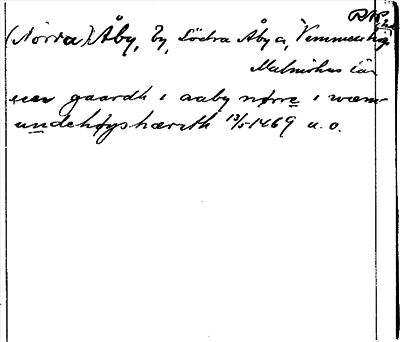 (Norra) Åby, By, Södra Åby s, Vemmenhögs
Malmöhus län
een gaardh i aaby nørre i wæm-
undehøgshæreth 13/5 1469 u. o.